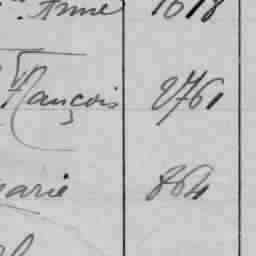 Anne 1618
François 2761
Marie 864